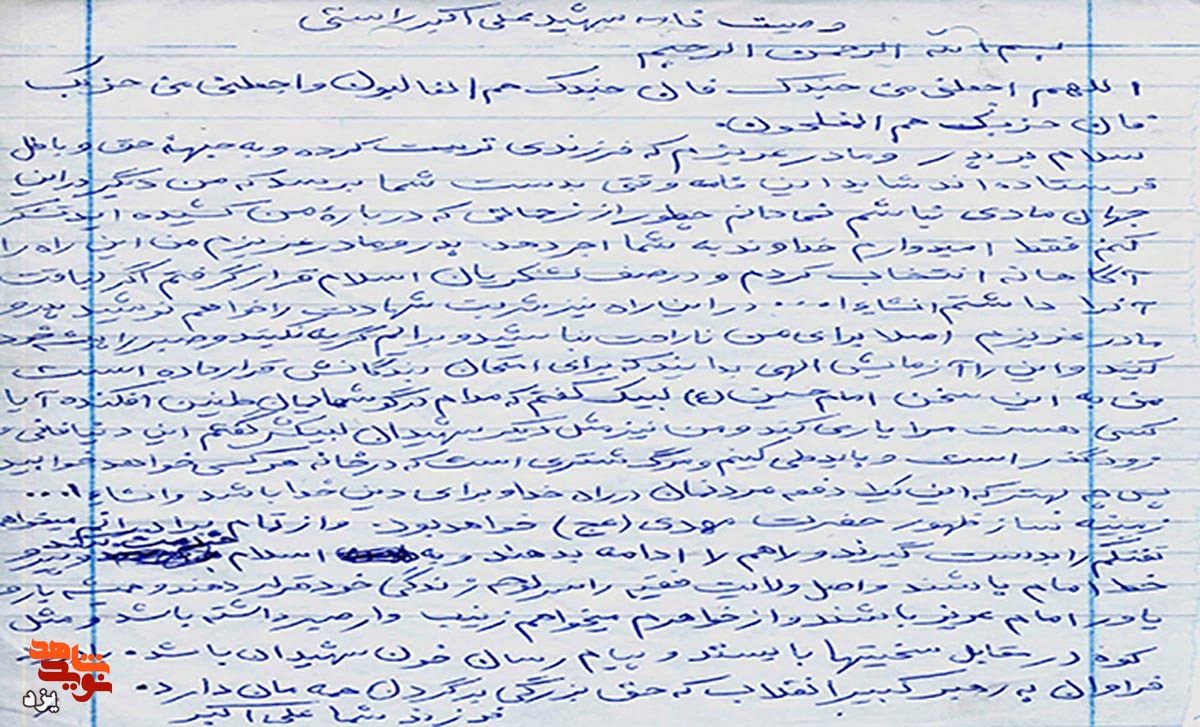 وصیت نامه شهید علی اکبر راستی
بسم الله الرحمن الرحیم
اللهم اجعلنی من جندک فان جندک هم الغالبون واجعلنی من حزبک
فان حزبک هم المفلحون.
سلام بر پدر و مادر عزیزم که فرزندی تربیت کرده و به جبههٔ حق و باطل
فرستاده اند شاید این نامه وقتی بدست شما برسد که من دیگر در این
جهان مادی نباشم نمی دانم چطور از زحماتی که دربارهٔ من کشیده اید تشکر
کنم فقط امیدوارم خداوند به شما اجر دهد. پدر و مادر عزیزم من این راه را
آگاهانه انتخاب کردم و در صف لشکریان اسلام قرار گرفتم اگر لیاقت
آنرا داشتم انشاءا... در این راه نیز شربت شهادت را خواهم نوشید پدر و
مادر عزیزم اصلا برای من ناراحت نباشید و برایم گریه نکنید و صبر را پیشه خود
کنید و این را آزمایش الهی بدانید که برای امتحان بندگانش قرار داده است
من به این سخن امام حسین (ع) لبیک گفتم که مدام در گوشمایمان طنین افکنده آیا
کسی هست مرا یاری کند و من نیز مثل دیگر شهیدان لبیکش گفتم این دنیا فانی و
زودگذر است و باید طی کنیم و مرگ شتری است که در خانه هر کسی خواهد خوابید
پس چه بهتر که این یک دفعه مردنمان در راه خدا و برای دین خدا باشد و انشاءا...
زمینه ساز ظهور حضرت مهدی (عج) خواهد بود. و از تمام برادرانم میخواهم
تفنگم را بدست گیرند و راهم را ادامه بدهند و به اسلام خدمت کنند و پیرو
خط امام باشند و اصل ولایت فقیه را سرلوحه زندگی خود قرار دهند و همیشه یار و
یاور امام عزیز باشند و از خواهرم میخواهم زینب وار صبر داشته باشد و مثل
کوه در مقابل سختیها بایستد و پیام رسان خون شهیدان باشد.
فراوان به رهبر کبیر انقلاب که حق بزرگی بر گردن همه مان دارد.
فرزند شما علی اکبر
نوید شاهد
یزد